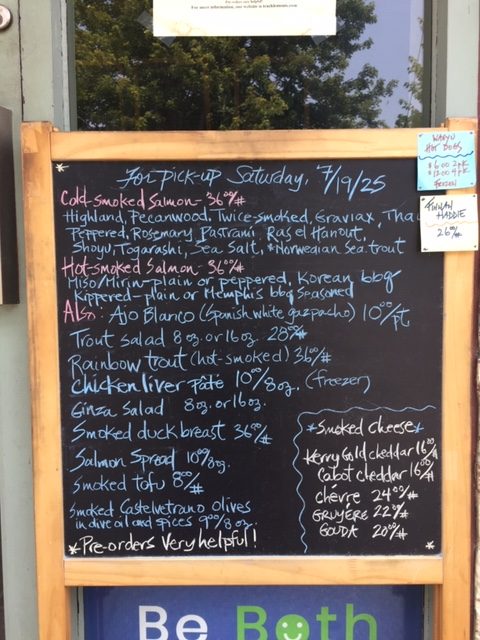 For Pick-up Saturday, 7/19/25
Cold-smoked Salmon - 36⁰⁰/#
Highland, Pecanwood, Twice-smoked, Gravlax, Thai
Peppered, Rosemary Pastrami, Ras el Hanout,
Shoyu, Togarashi, Sea Salt, *Norwegian Sea trout
Hot-smoked Salmon 36⁰⁰/#
Miso/Mirin-plain or peppered, Korean bbq
Kippered-plain or Memphis bbq Seasoned
Also: Ajo Blanco (Spanish white gazpacho) 10⁰⁰/pt
Trout salad 8 oz. or 16oz. 28⁰⁰/#
Rainbow trout (hot-smoked) 36⁰⁰/#
Chicken liver Pâté 10⁰⁰/8oz. (freezer)
Ginza Salad 8oz. or 16oz.
Smoked duck breast 36⁰⁰/#
Salmon Spread 10⁰⁰/8oz.
Smoked tofu 8⁰⁰/#
Smoked Castelvetrano Olives
in olive oil and spices 9⁰⁰/8oz.
*Pre-orders Very helpful! *
*Smoked Cheese*
Kerrygold cheddar 16⁰⁰/#
Cabot cheddar 16⁰⁰/#
Chèvre 24⁰⁰/#
GRUYÈRE 22⁰⁰/#
GOUDA 20⁰⁰/#
HOT DOGS
$6.00 2pk
$12.00 4pk
FROZEN
FINNAN
HADDIE
26⁰⁰/#
Be Both